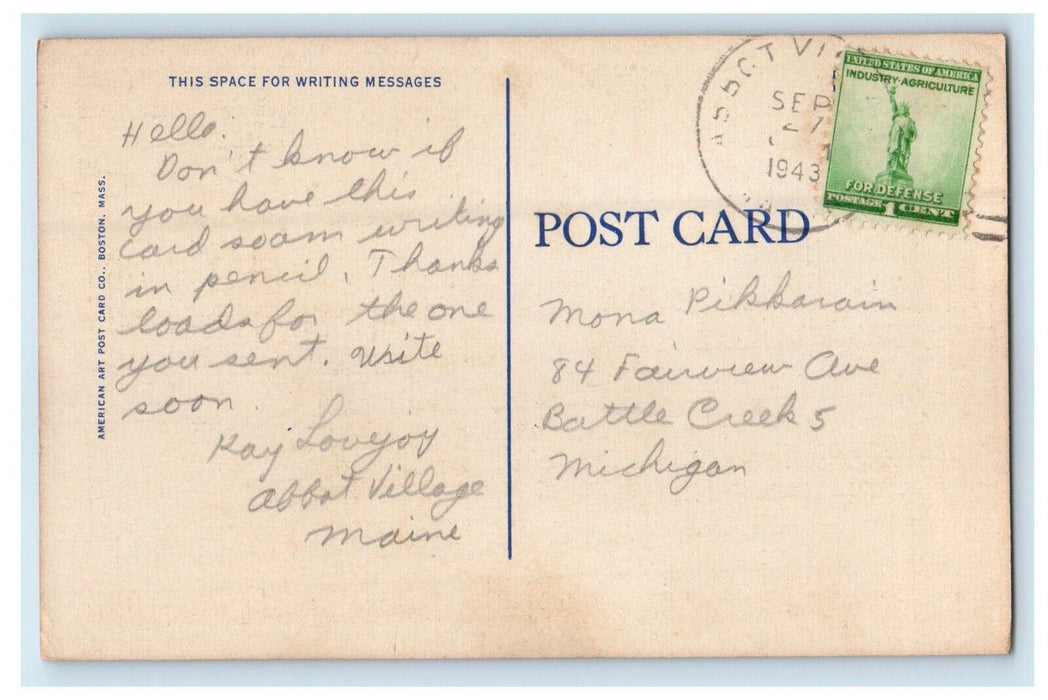 THIS SPACE FOR WRITING MESSAGES
Hello.
Don't know if
you have this
card so am writing
in pencil. Thanks
loads for the one
you sent. Write
soon.
Kay Lovejoy
Abbot Village
Maine
AMERICAN ART POST CARD CO., BOSTON, MASS.
SEP
27
1943
UNITED STATES OF AMERICA
INDUSTRY-AGRICULTURE
FOR DEFENSE
POSTAGE 1 CENT
POST CARD
Mona Pikkarain
84 Fairview Ave
Battle Creek 5
Michigan